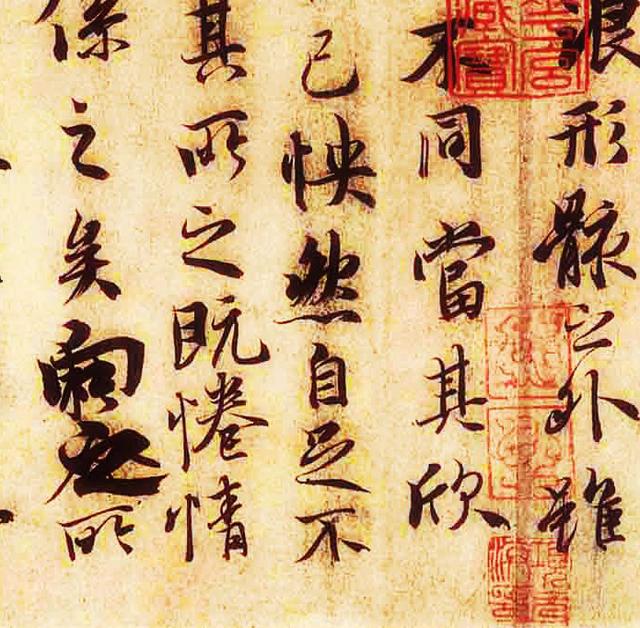 浪形骸之外雖
不同當其欣
己怏然自足不
其所之既惓情
係之矣向之所